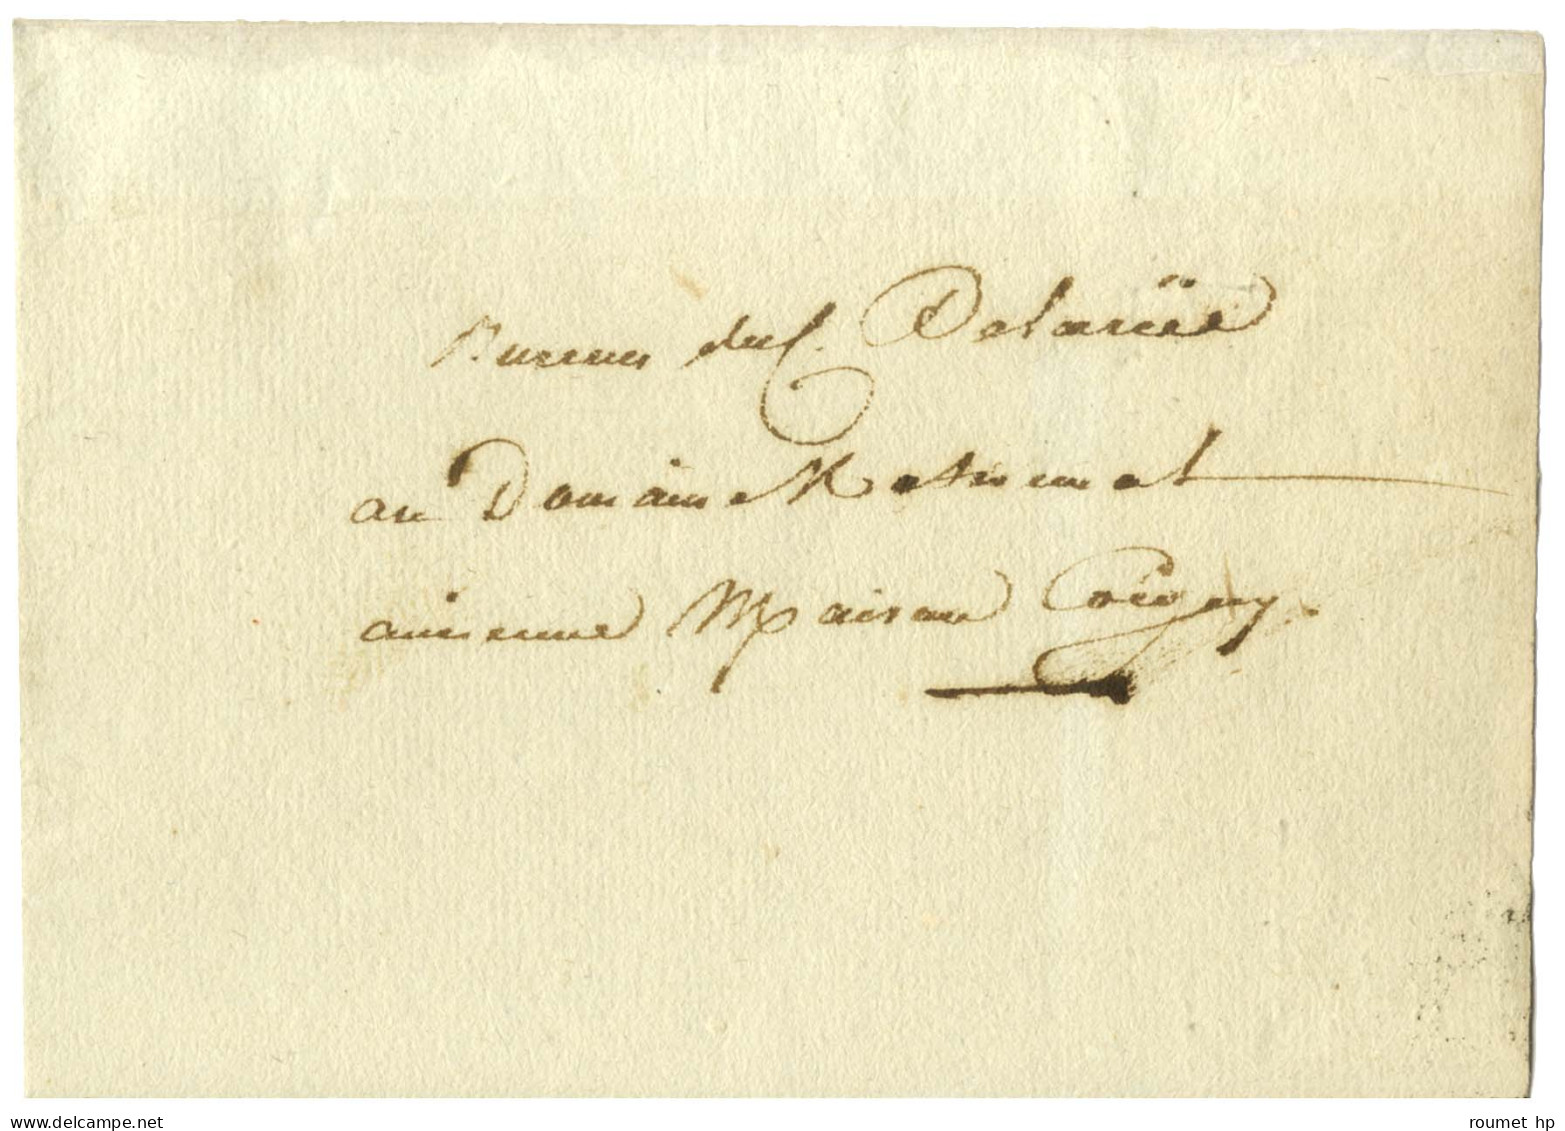 Bureau du C. Delarüe
au Domaine National
ancienne Maison Coigny.
roumet hp